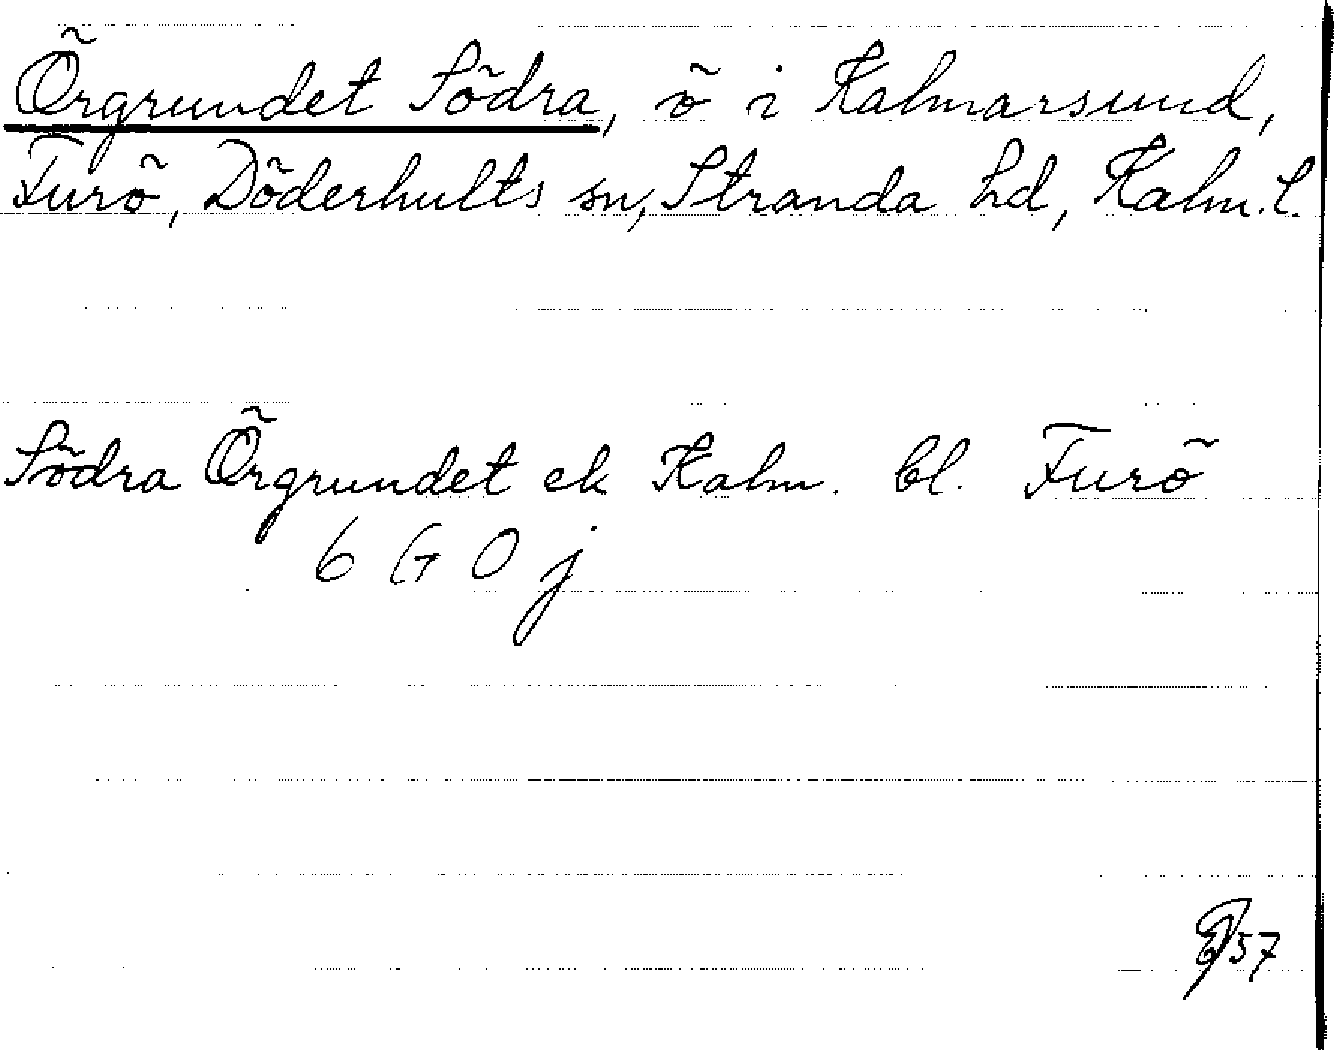 Örgrundet Södra, ö i Kalmarsund,
Furö, Döderhults sn, Stranda hd, Kalm. l.
Södra Örgrundet ek Kalm. bl. Furö
6 G 0 j
57